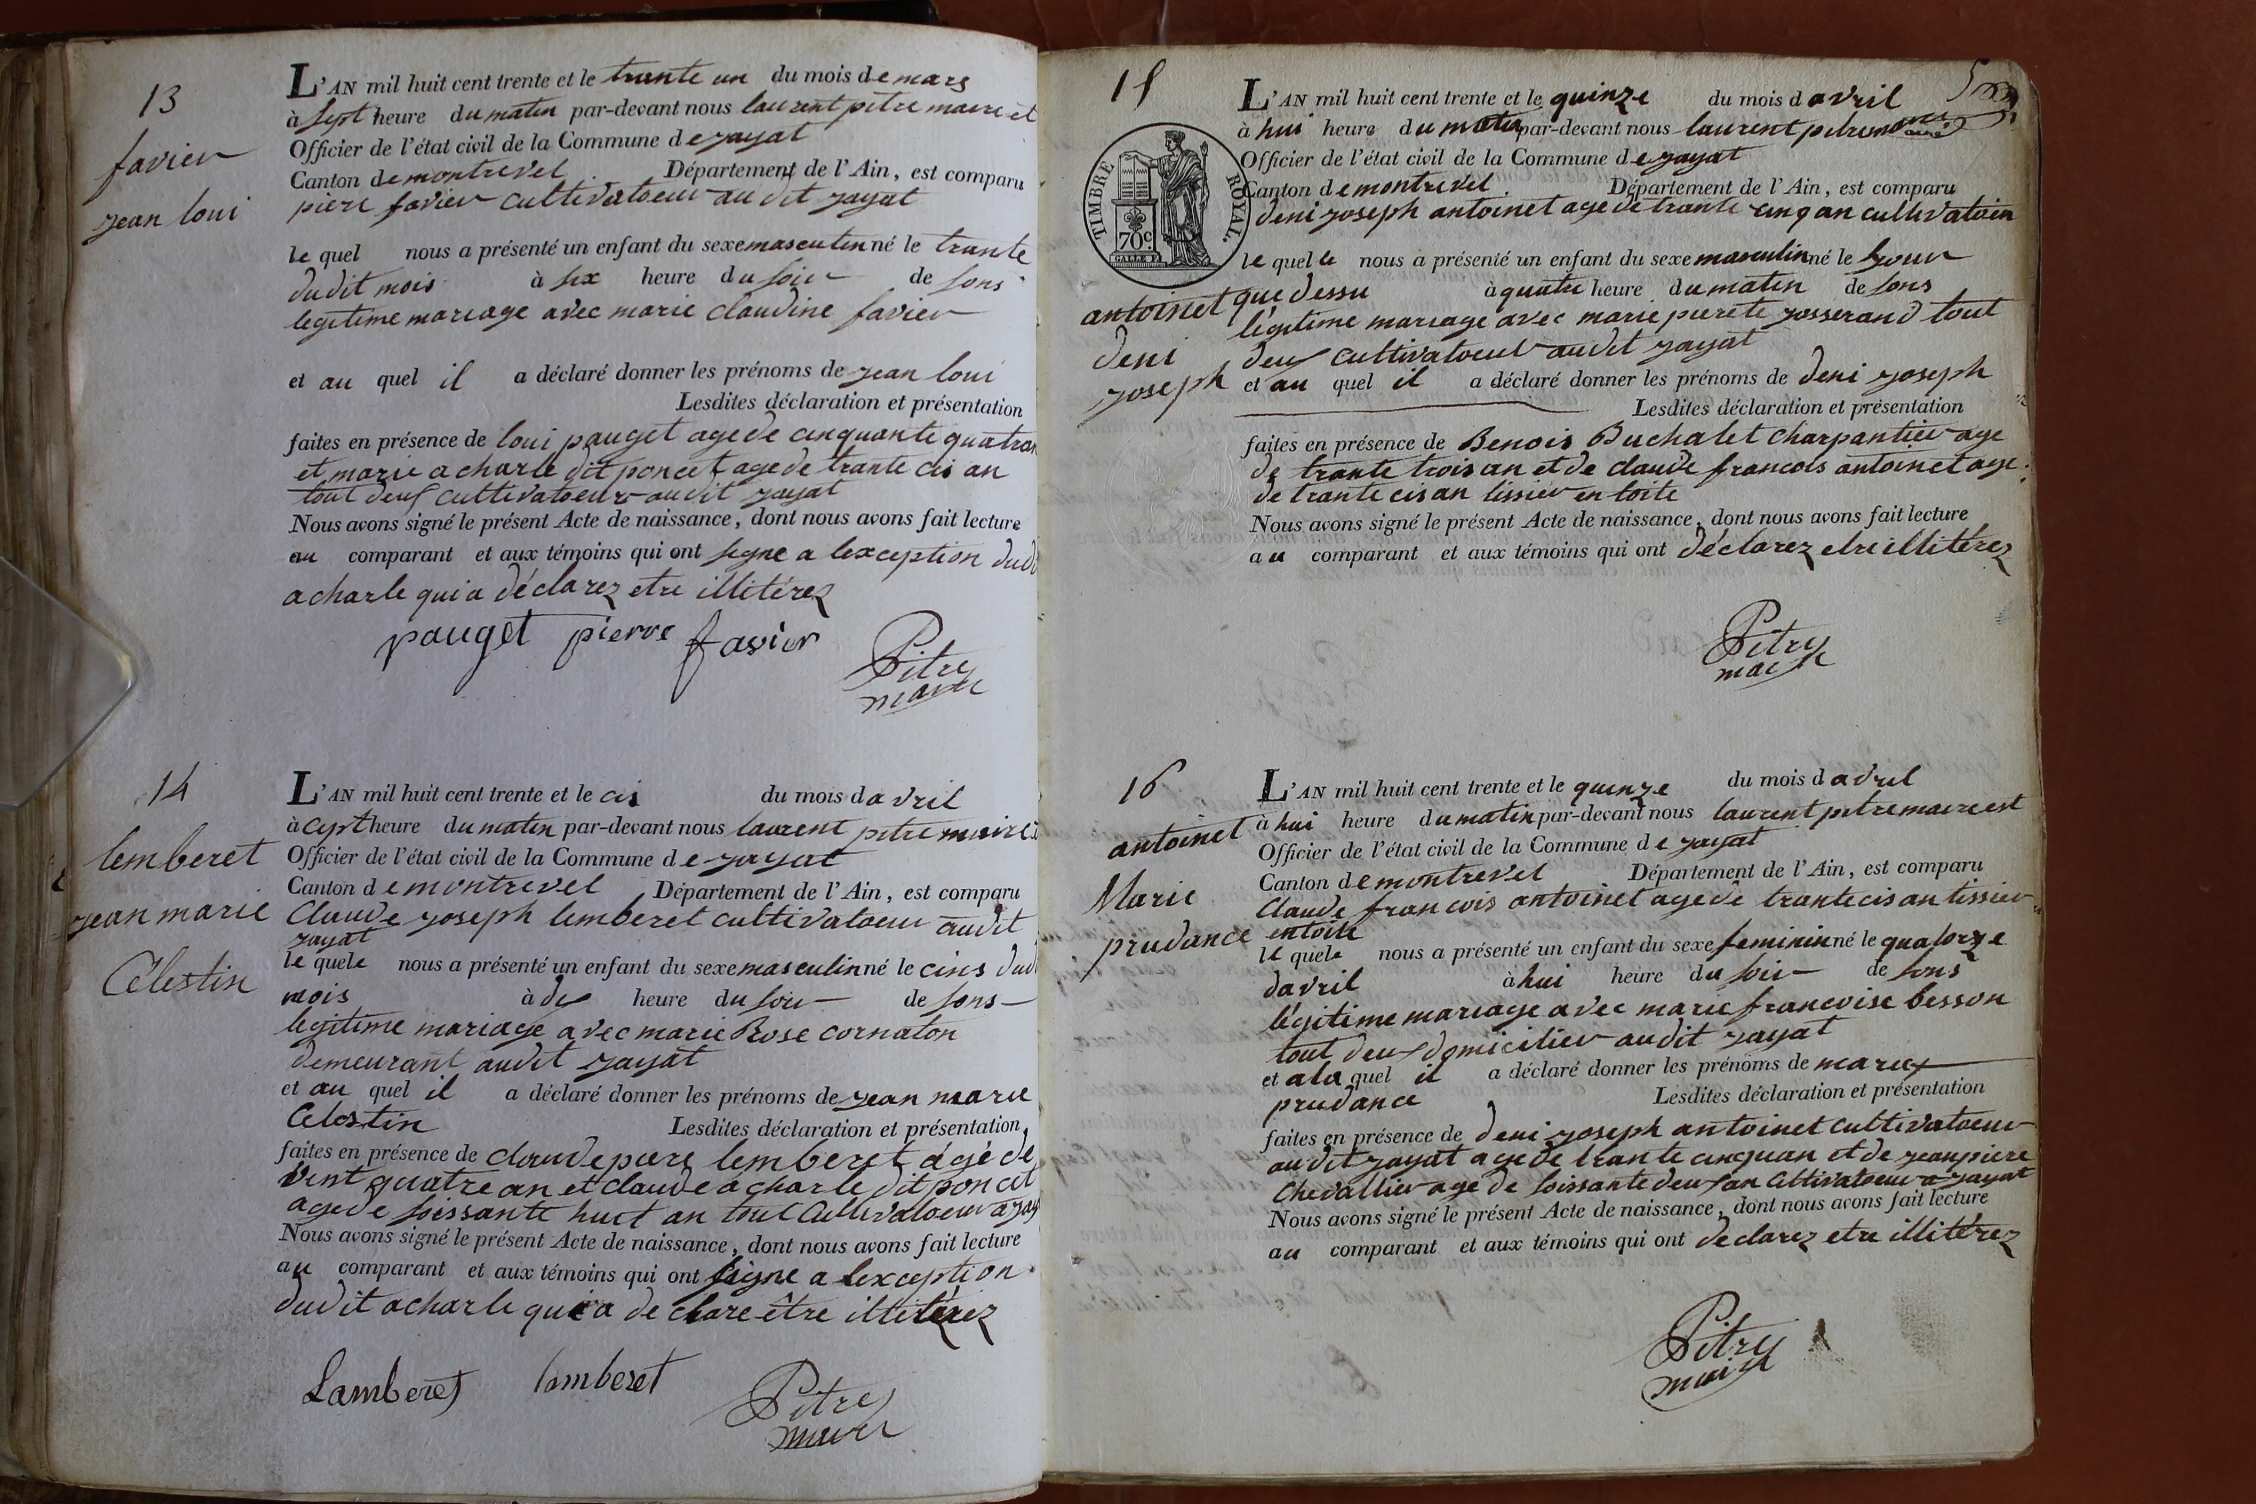 13
favier
jean loui
L'AN mil huit cent trente et le trante un du mois de mars
à sept heure du matin par-devant nous laurent pitre maire et
Officier de l'état civil de la Commune de jayat
Canton de montrevel Département de l'Ain, est comparu
piere favier cultivatoeur au dit jayat
le quel nous a présenté un enfant du sexe masculin né le trante
dudit mois à six heure du soir de sons
legitime mariage avec marie claudine favier
et au quel il a déclaré donner les prénoms de jean loui
Lesdites déclaration et présentation
faites en présence de loui pauget age de cinquante quatran
et marie acharle dit poncet age de trante cis an
tout deux cultivatoeur audit jayat
Nous avons signé le présent Acte de naissance, dont nous avons fait lecture
au comparant et aux témoins qui ont signe a lexception dudi
acharle qui a déclarez etre illitérez
pauget pierre favier
Pitre
maire
14
lemberet
jean marie
Célestin
L'AN mil huit cent trente et le cis du mois davril
à cept heure du matin par-devant nous laurent pitre maire
Officier de l'état civil de la Commune de jayat
Canton de montrevel Département de l'Ain, est comparu
Claude joseph lemberet cultivatoeur audit
jayat
le quele nous a présenté un enfant du sexe masculin né le cins dud
mois à dix heure du soir de sons
legitime mariage avec marie Rose cornaton
demeurant audit jayat
et au quel il a déclaré donner les prénoms de jean marie
Celestin Lesdites déclaration et présentation
faites en présence de claude lemberet agé de
vint quatre an et claude acharle dit poncet
age de soissante huit an tout cultivatoeur a jay
Nous avons signé le présent Acte de naissance, dont nous avons fait lecture
au comparant et aux témoins qui ont signe a lexception
dudit acharle qui a declare être illitérez
Lamberet lamberet
Pitre
maire
15
TIMBRE ROYAL.
70c.
antoinet
deni
joseph
L'AN mil huit cent trente et le quinze du mois davril
à hui heure du matin par-devant nous laurent pitre
Officier de l'état civil de la Commune de jayat
Canton de montrevel. Département de l'Ain, est comparu
deni joseph antoinet age de trante cinq an cultivatoeur
le quel le nous a présenté un enfant du sexe masculin né le jour
que dessu à quatre heure du matin de sons
légitime mariage avec marie pierete josserand tout
deux cultivatoeur audit jayat
et au quel il a déclaré donner les prénoms de deni joseph
Lesdites déclaration et présentation
faites en présence de Benois Buchalet charpantier age
de trante trois an et de claude francois antoinet age
de trante cis an tissier en toile
Nous avons signé le présent Acte de naissance, dont nous avons fait lecture
au comparant et aux témoins qui ont déclarez etre illitérez
Pitre
maire
16
antoinet
Marie
prudance
L'AN mil huit cent trente et le quinze du mois davril
à hui heure du matin par-devant nous laurent pitre maire est
Officier de l'état civil de la Commune de jayat
Canton de montrevel Département de l'Ain, est comparu
Claude francois antoinet age de trante cis an tissier
en toile
le quele nous a présenté un enfant du sexe feminin né le quatorze
davril à hui heure du soir de sons
légitime mariage avec marie francoise besson
tout deux domicilier audit jayat
et ala quel il a déclaré donner les prénoms de marie
prudance Lesdites déclaration et présentation
faites en présence de deni joseph antoinet cultivatoeur
audit jayat age de trante cinquan et de jean piere
Chevallier age de soissante deux an cultivatoeur a jayat
Nous avons signé le présent Acte de naissance, dont nous avons fait lecture
au comparant et aux témoins qui ont declarez etre illitérez
Pitre
maire